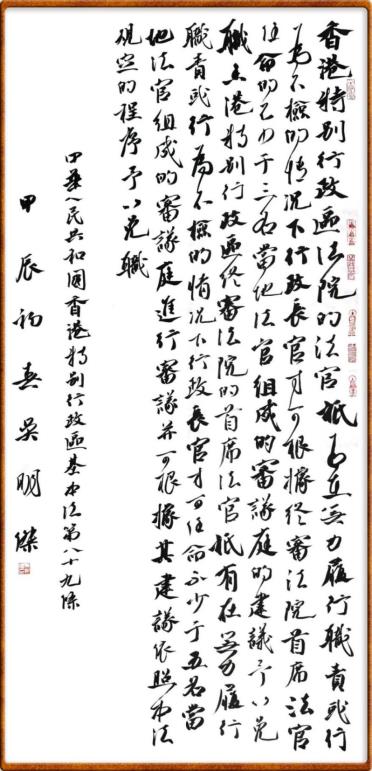 香港特别行政區法院的法官祇有在无力履行職責或行
為不檢的情况下行政長官才可根據終審法院首席法官
任命的不少于三名當地法官組成的審議庭的建議予以免
職香港特别行政區终審法院的首席法官祇有在无力履行
職責或行為不檢的情况下行政長官才可任命不少于五名當
地法官組成的審議庭進行審議并可根據其建議依照本法
規定的程序予以免職
中華人民共和國香港特别行政區基本法第八十九條
甲辰初春吴明傑